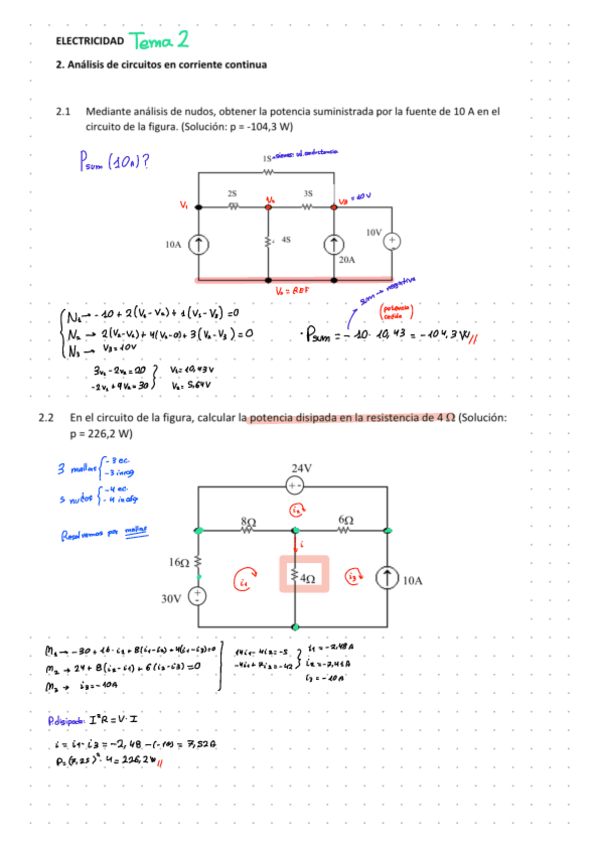 ELECTRICIDAD Tema 2
2. Análisis de circuitos en corriente continua
2.1 Mediante análisis de nudos, obtener la potencia suministrada por la fuente de 10 A en el
circuito de la figura. (Solución: p = -104,3 W)
Psum (10A)?
1S
2S
3S
V₁
V₂
V₃ = 10V
10A
4S
20A
10V
V₀ = REF
N₁ → -10 + 2(V₁-V₂) + 1(V₁-V₃) = 0
N₂ → 2(V₂-V₁) + 4(V₂-0) + 3(V₂-V₃) = 0
N₃ → V₃ = 10V
(potencia
cedida)
· Psum = -10 · 10,43 = -104,3 W //
3V₁ - 2V₂ = 20
V₁ = 10,43 V
-2V₁ + 9V₂ = 30
V₂ = 5,64V
2.2 En el circuito de la figura, calcular la potencia disipada en la resistencia de 4 Ω (Solución:
p = 226,2 W)
3 mallas
-3 ec.
-3 incog
5 nudos
-4 ec.
-4 incóg
Resolvemos por mallas
24V
i₂
8Ω
6Ω
i
16Ω
i₁
4Ω
i₃
10A
30V
M₁ → -30 + 16·i₁ + 8(i₁-i₂) + 4(i₁-i₃) = 0
M₂ → 24 + 8(i₂-i₁) + 6(i₂-i₃) = 0
M₃ → i₃ = -10A
i₁ = -2,48 A
i₃ = -10A
P.disipada: I²R = V·I
i = i₁ - i₃ = -2,48 - (-10) = 7,52A
P = (7,52)² · 4 = 226,2 W //